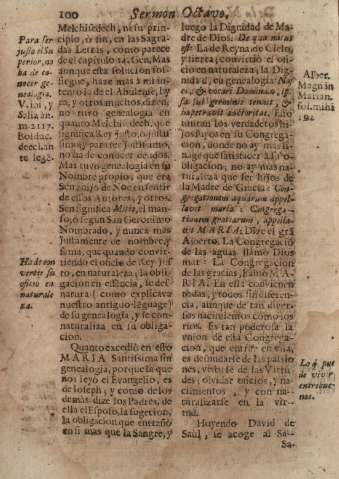 100 Sermon Octavo,
Para ser
justo el Su
perior, no
ha de co-
nocer ge-
nealogia.
Melchisedech, ni su princi-
pio, ni fin, en las Sagra-
das Letras, como parece
del capitulo 14. Gen. Mas
aunque esta solucion sos-
siegue, haze mas à mi in-
tento la de el Abulense, Ly-
ra, y otros muchos dizen,
no tuvo genealogia en
quanto Melchisedech, que
significa Rey justo, ò justis-
simo; y para ser justissimo,
no ha de conocer deudos.
Mas tuvo genealogia en su
Nombre proprio, que era
Sen, hijo de Noe en sentir
de estos Autores, y otros.
Sen significa
so, ò segun San Geronimo
Nombrado, y nunca mas
justamente de nombre, y
fama, que quando convir-
tiendo el oficio de Rey just
to, en naturaleza; la obli-
gacion en essencia, se des-
natura (como explicava
nuestro antiguo lenguage)
de su genealogia, y se con-
naturaliza en su obliga-
cion.
Ha de con
vertir su
oficio en
naturale
za.
Quanto excedió en esto
MARIA Santissima sin
genealogia, porque la que
nos leyó el Evangelio, es
de Joseph, y como de los
demàs dize los Padres, de
ella el Esposo, la sugecion,
la obligacion que entrañó
en si mas que la Sangre, y
luego la Dignidad de Ma-
dre de Dios. De qua natus
est. La de Reyna de Cielo,
y tierra; convirtió el ofi-
cio en naturaleza; la Dig-
nidad, en genealogia:
& vocari Dominam,
&
imperavit authoritas. Esto
sienten los verdaderos hi-
jos suyos en su Congrega-
cion, donde no ay mas li-
nage que satisfacer à la
obligacion; no ay mas na-
turaleza que ser hijos de
la Madre de Gracia: Con-
gregationem aquarum appel-
lavit maria: Congrega-
tionem gratiarum, appella-
vit MARIA; Dize el gra
Alberto. La Congregacion
de las aguas llamò Dios
mar: La Congregacion
de las gracias, llamò MA-
RIA. En esta convienen
todas, y todos sin diferen-
cia, aunque de tan diver-
sos nacimientos como los
rios. Es tan poderosa la
union de esta Congrega-
cion, que entrar en ella,
es desnudarse de las passio-
nes, vestirse de las Virtu-
des; olvidar vicios, y na-
cimientos, y con na-
turalizarse en la vir-
tud.
Alber.
Magn in
Marian.
fol. mihi
192.
Lo q̃ pue
de vivir
Huyendo David de
Saùl, se acoge al Sa-
Sa-